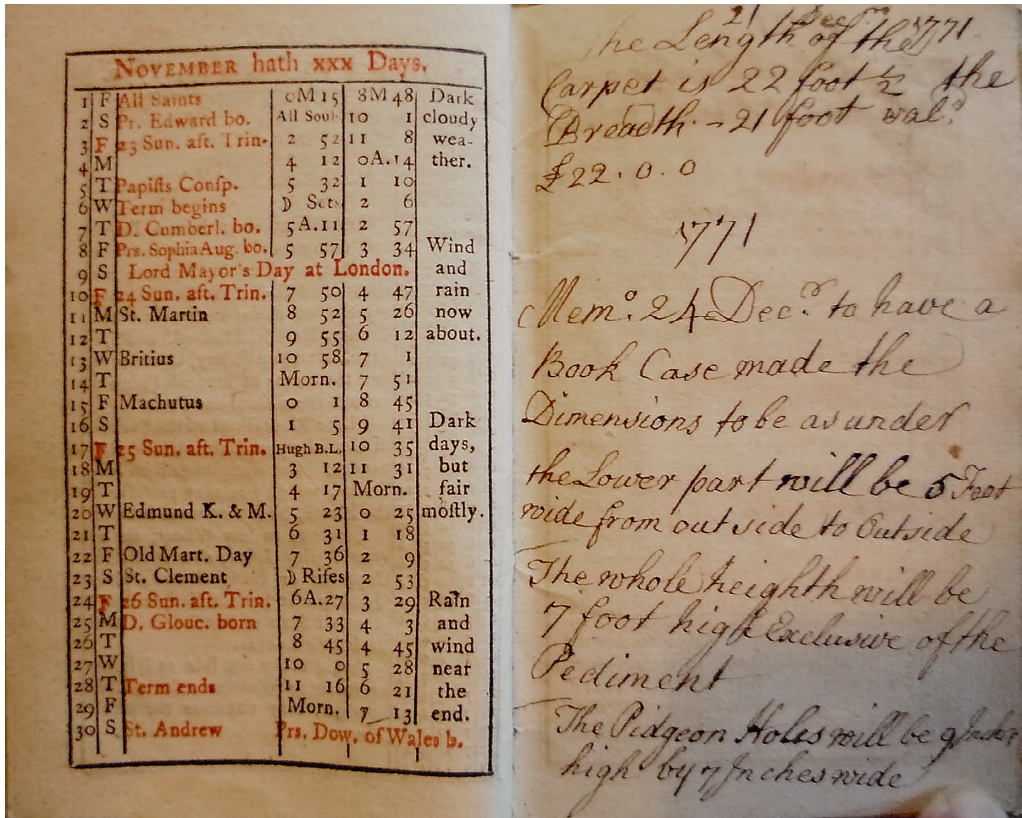 NOVEMBER hath xxx Days.
1 F All Saints 0M 15 8M 48 Dark
2 S Pr. Edward bo. All Soul 10 1 cloudy
3 F 23 Sun. aft. Trin. 2 52 11 8 wea-
4 M 4 12 0A.14 ther.
5 T Papiſts Conſp. 5 32 1 10
6 W Term begins D Sets 2 6
7 T D. Cumberl. bo. 5A.11 2 57
8 F Prs. Sophia Aug. bo. 5 57 3 34 Wind
9 S Lord Mayor's Day at London. and
10 F 24 Sun. aft. Trin. 7 50 4 47 rain
11 M St. Martin 8 52 5 26 now
12 T 9 55 6 12 about.
13 W Britius 10 58 7 1
14 T Morn. 7 51
15 F Machutus 0 1 8 45
16 S 1 5 9 41 Dark
17 F 25 Sun. aft. Trin. Hugh B.L. 10 35 days,
18 M 3 12 11 31 but
19 T 4 17 Morn. fair
20 W Edmund K. & M. 5 23 0 25 moſtly.
21 T 6 31 1 18
22 F Old Mart. Day 7 36 2 9
23 S St. Clement D Riſes 2 53
24 F 26 Sun. aft. Trin. 6A.27 3 29 Rain
25 M D. Glouc. born 7 33 4 3 and
26 T 8 45 4 45 wind
27 W 10 0 5 28 near
28 T Term ends 11 16 6 21 the
29 F Morn. 7 13 end.
30 S St. Andrew Prs. Dow. of Wales b.
21 Decem 1771
The Length of the
Carpet is 22 foot ½ the
Breadth - 21 foot val.
£22.0.0
1771
Mem.o 24 Dec.r to have a
Book Case made the
Dimensions to be as under
the Lower part will be 5 Foot
wide from out side to Outside
The whole heighth will be
7 foot high Exclusive of the
Pediment
The Pidgeon Holes will be 9 Inches
high by 7 Inches wide